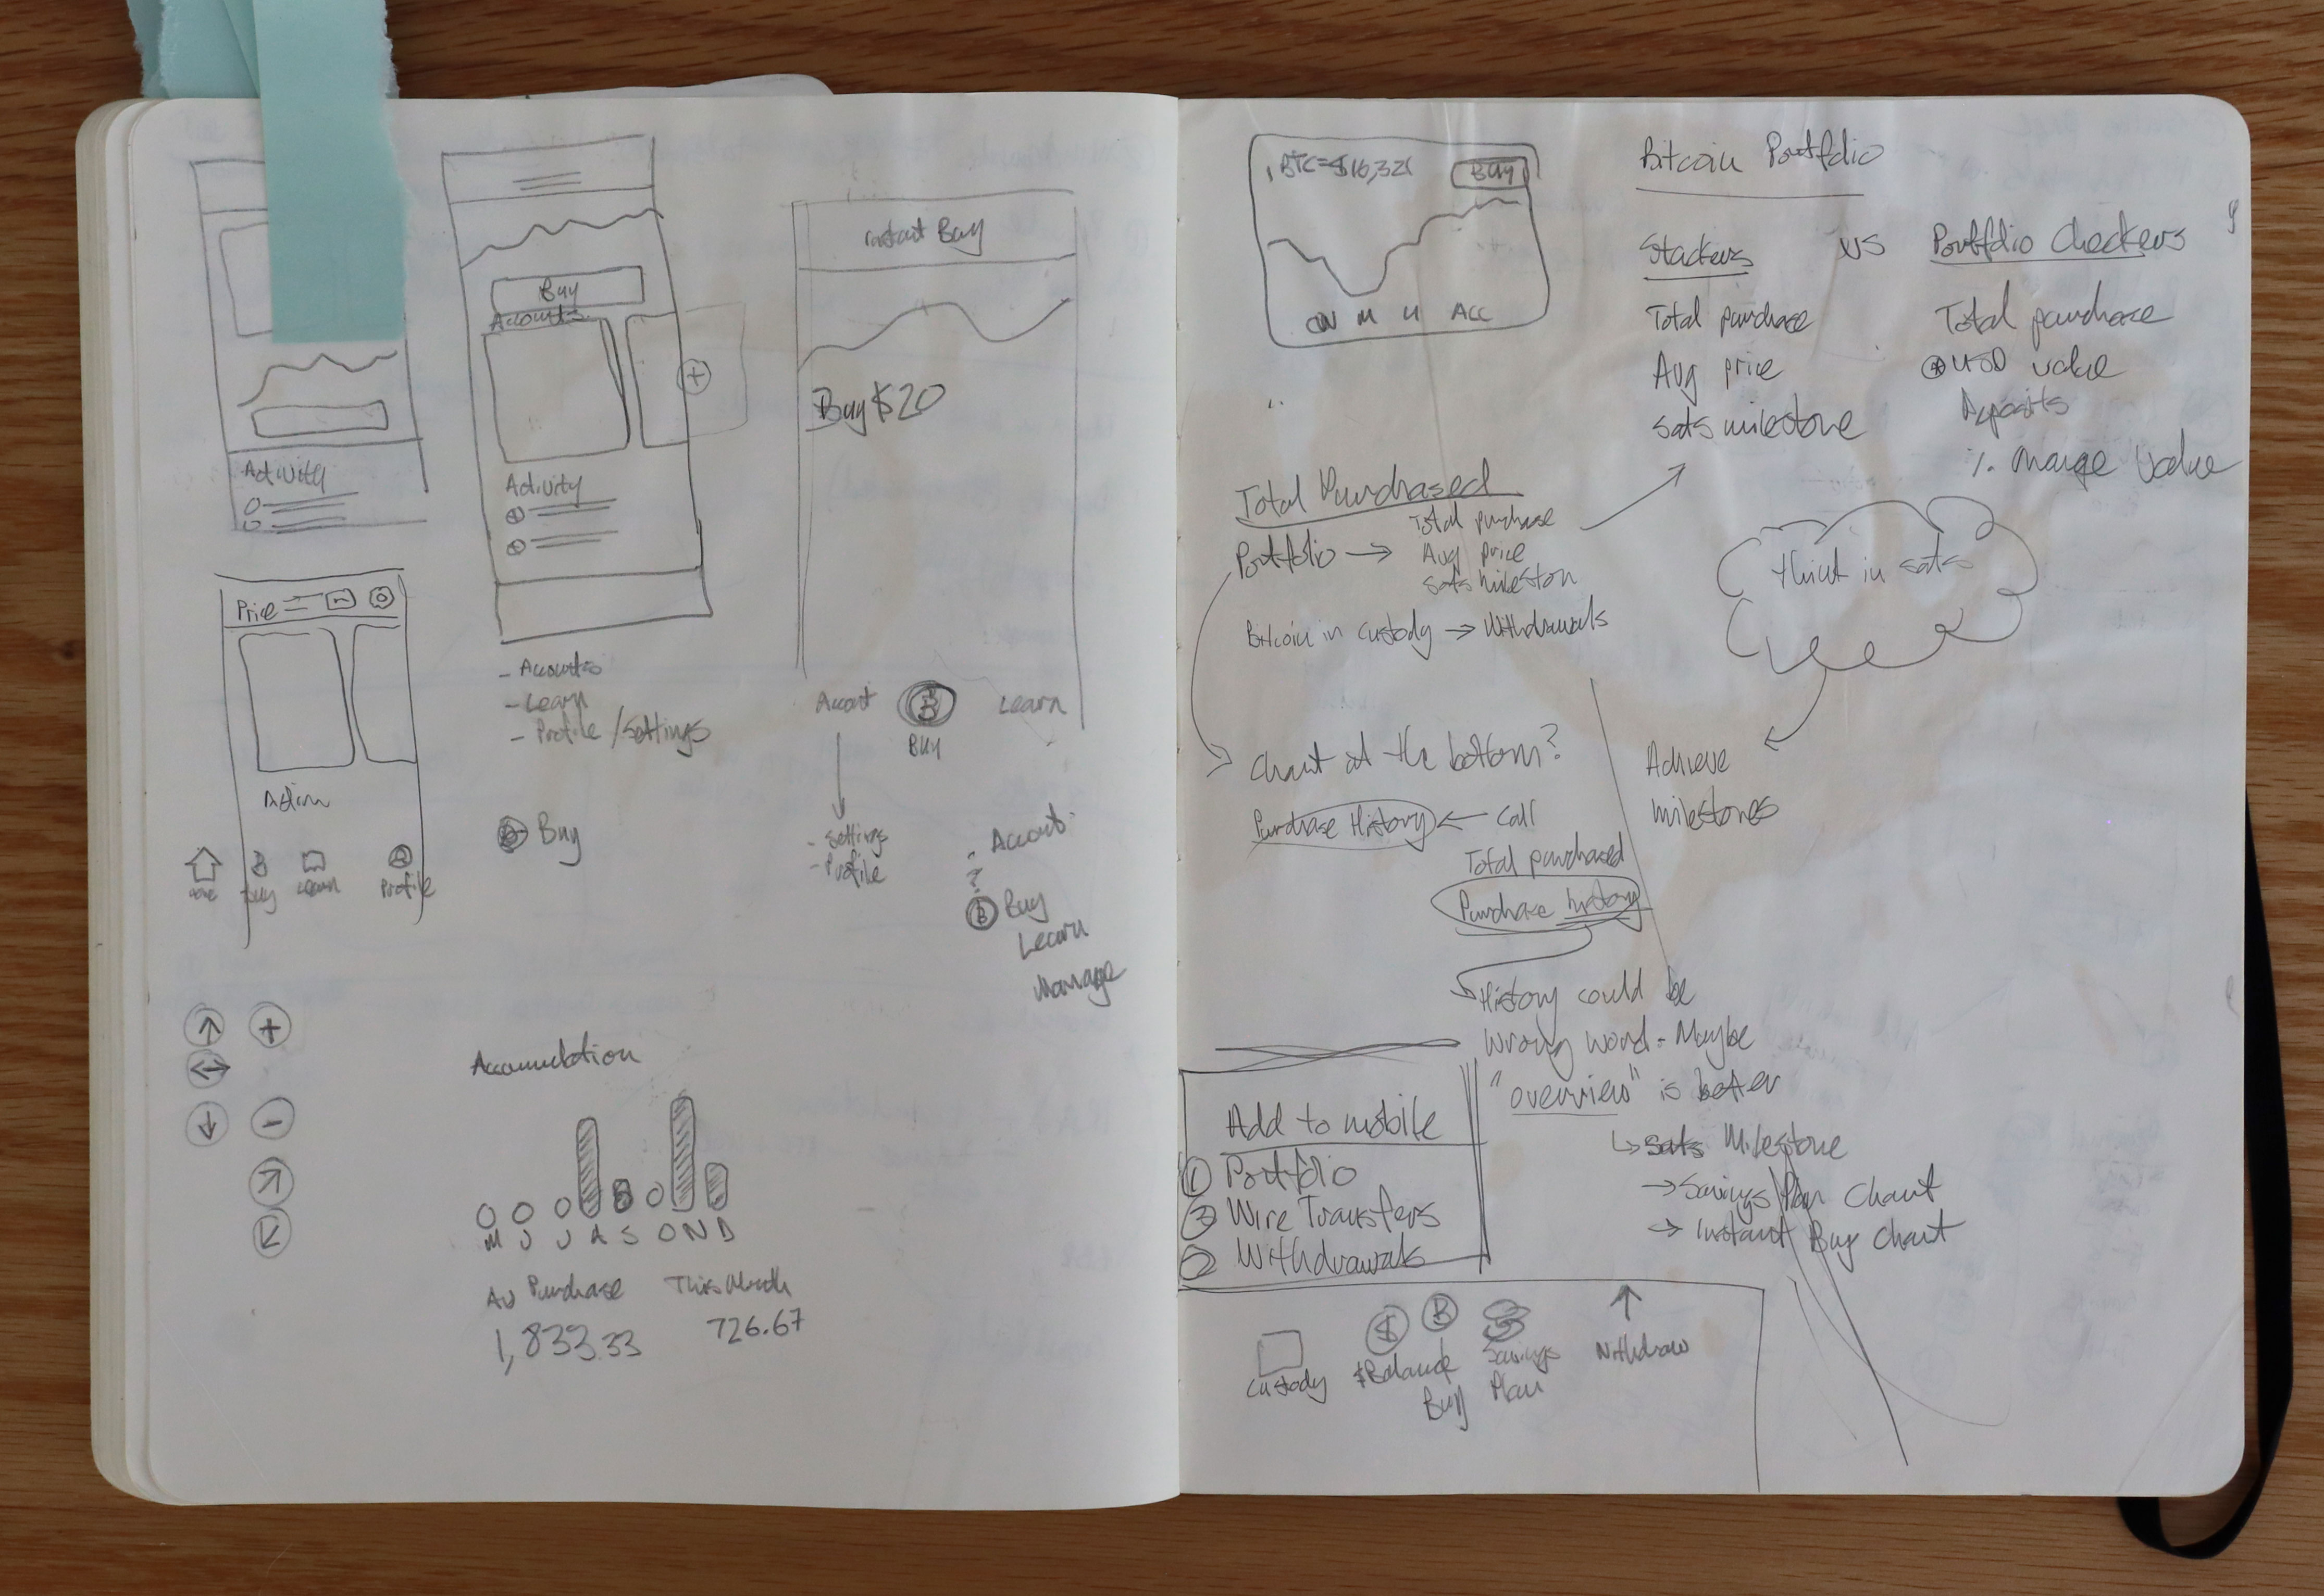 Activity
Price
Action
Home
Buy
Learn
Profile
Buy
Accounts
Activity
- Accounts
- Learn
- Profile / Settings
B Buy
Instant Buy
Buy $20
Account
B
Buy
Learn
- Settings
- Profile
- Account
?
B Buy
Learn
Manage
Accumulation
M J J A S O N D
Av Purchase
This Month
1,833.33
726.67
1 BTC = $16,321
Buy
M
ACC
Bitcoin Portfolio
Stackers
vs
Portfolio Checkers
Total purchase
Avg price
Sats milestone
Total purchase
USD value
Deposits
% Change Value
Total Purchased
Portfolio →
Total purchase
Avg price
Sats mileston
Bitcoin in custody → Withdrawals
think in sats
Achieve
milestones
Chart at the bottom?
Purchase History ← Call
Total purchased
Purchase history
History could be
wrong word - Maybe
"overview" is better
↳ Sats Milestone
→ Savings Plan Chart
→ Instant Buy Chart
Add to mobile
1 Portfolio
2 Wire Transfers
Withdrawals
Custody
$
$Balance
B
Buy
Savings
Plan
↑
Withdraw